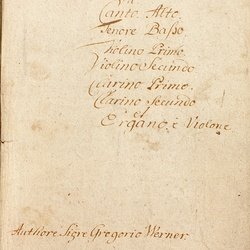 Canto. Alto.
Tenore Basso
Violino Primo.
Violino Secundo
Clarino Primo.
Clarino Secundo
e
Organo, è Violone.
Authore Sigre Gregorio Werner.